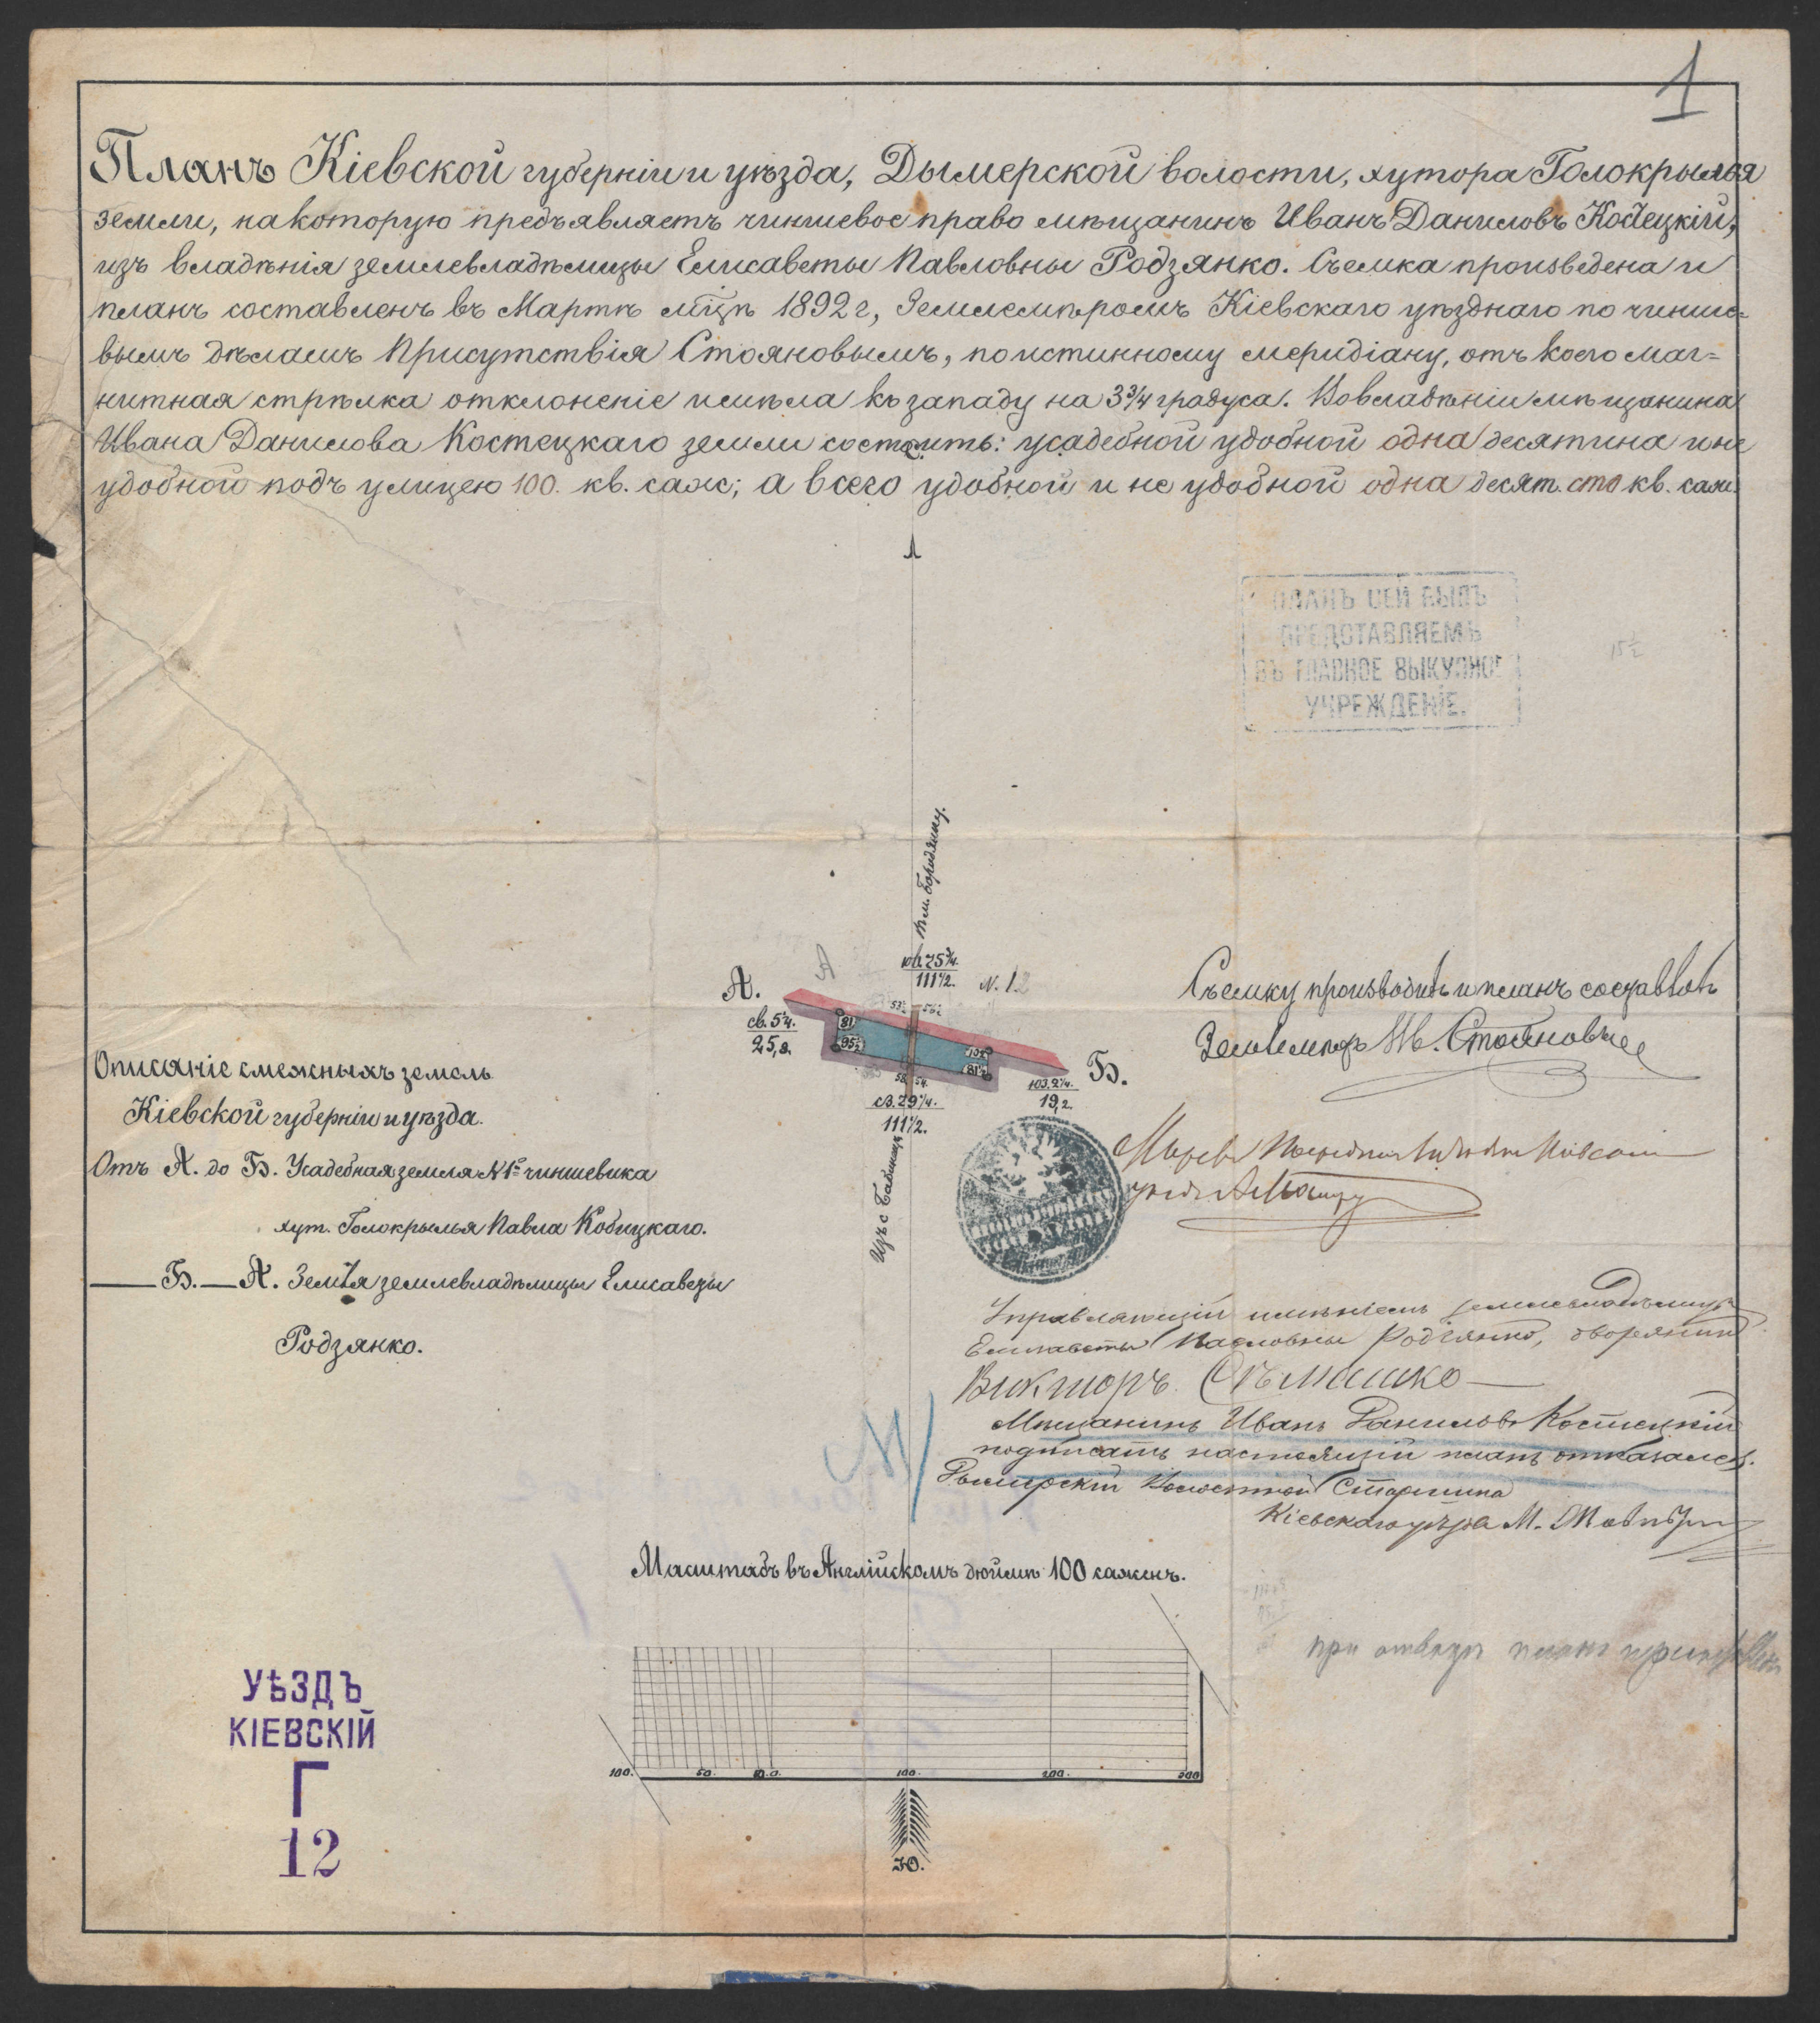 1
Планъ Кіевской губерніи и уѣзда, Дымерской волости, хутора Голокрылья
земли, на которую предъявляетъ чиншевое право мѣщанинъ Иванъ Даниловъ Костецкій,
изъ владѣнія землевладѣлицы Елисаветы Павловны Родзянко. Съемка произведена и
планъ составленъ въ Мартѣ мѣцѣ 1892 г, Землемѣромъ Кіевскаго уѣзднаго по чинше-
вымъ дѣламъ Присутствія Стояновымъ, по истинному меридіану, отъ коего маг=
нитная стрѣлка отклоненіе имѣла къ западу на 3¾ градуса. Во владѣніи мѣщанина
Ивана Данилова Костецкаго земли состоитъ: усадебной удобной одна десятина и не
удобной подъ улицею 100. кв. саж; а всего удобной и не удобной одна десят. сто кв. саж.
ПЛАНЪ СЕЙ БЫЛЪ
ПРЕДСТАВЛЯЕМЪ
ВЪ ГЛАВНОЕ ВЫКУПНОЕ
УЧРЕЖДЕНІЕ.
15½
въ м. Бородянку.
юв. 75¾.
111½.
N. 12
А.
А
св. 5¼.
25,8.
81
95½
81½
Б.
103. 2¼.
19,2
сз. 29¼.
111½.
Изъ с Бабинецъ
Съемку производилъ и планъ составлялъ
Землемѣръ Ив. Стояновъ
Описаніе смежныхъ земель
Кіевской губерніи и уѣзда.
Отъ А. до Б. Усадебная земля N 1го чиншевика
хут. Голокрылья Павла Кобицкаго.
Б. А. Земля землевладѣлицы Елисаветы
Родзянко.
Управляющій имѣніемъ землевладѣлицы
Елисаветы Павловны Родзянко, дворянинъ
Викторъ Сѣмашко
Мѣщанинъ Иванъ Даниловъ Костецкій
подписать настоящій планъ отказался.
Дымерскій Волостной Старшина
Кіевскаго уѣзда М.
Масштабъ въ Англійскомъ дюймѣ 100 саженъ.
при отводѣ планъ
100. 50. 10. 0. 100. 200. 300
Ю.
УѢЗДЪ
КІЕВСКІЙ
Г
12